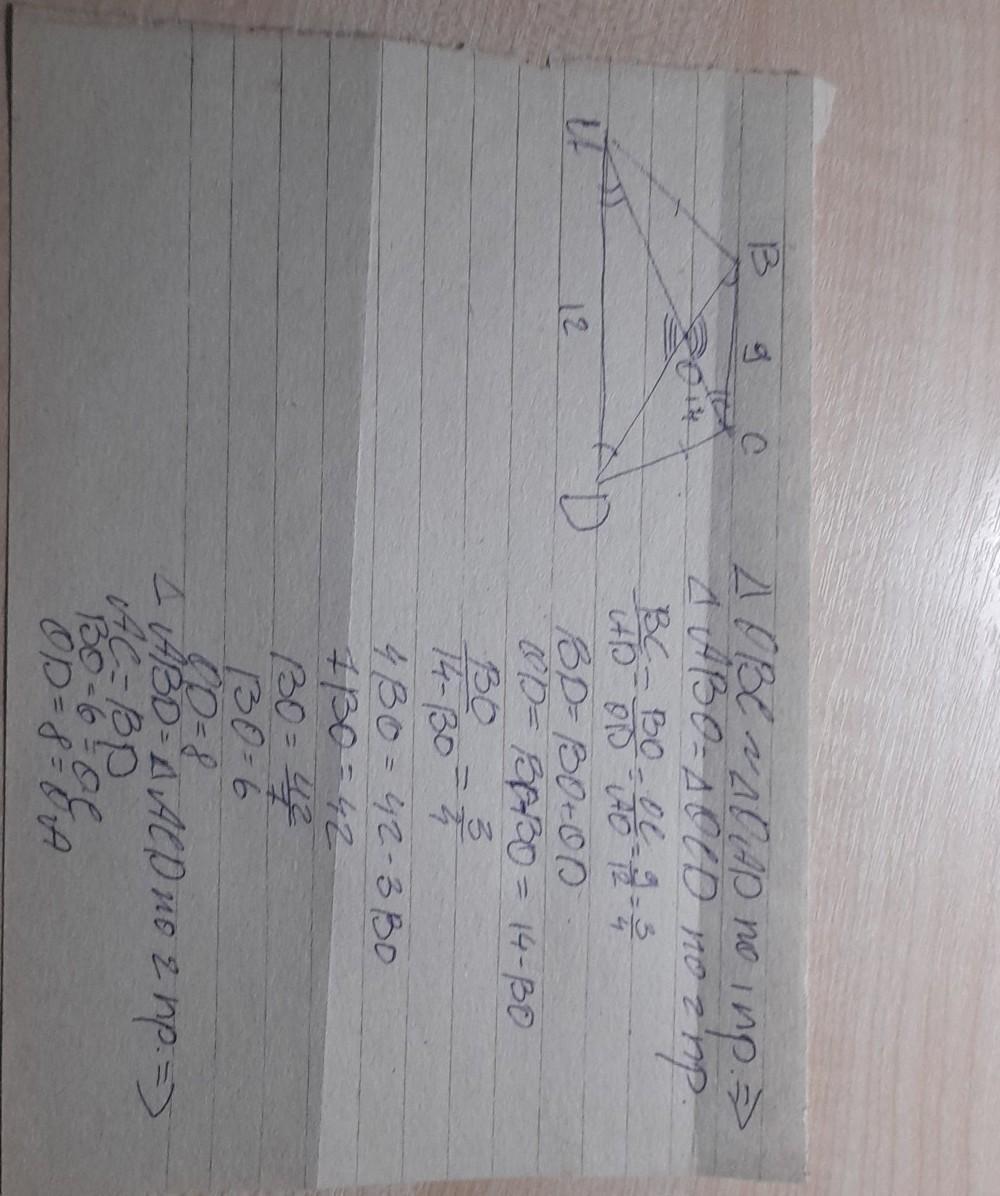 B 9 C
O
14
A 12 D
Δ OBC ~ Δ OAD по 1 пр. ⇒
Δ ABO = Δ OCD по 2 пр.
BC/AD = BO/OD = OC/AO = 9/12 = 3/4
BD = BO + OD
OD = BD - BO = 14 - BO
BO/14-BO = 3/4
4BO = 42 - 3BO
7BO = 42
BO = 42/7
BO = 6
OD = 8
Δ ABD = Δ ACD по 2 пр. ⇒
AC = BD
BO = 6 = OC
OD = 8 = OA